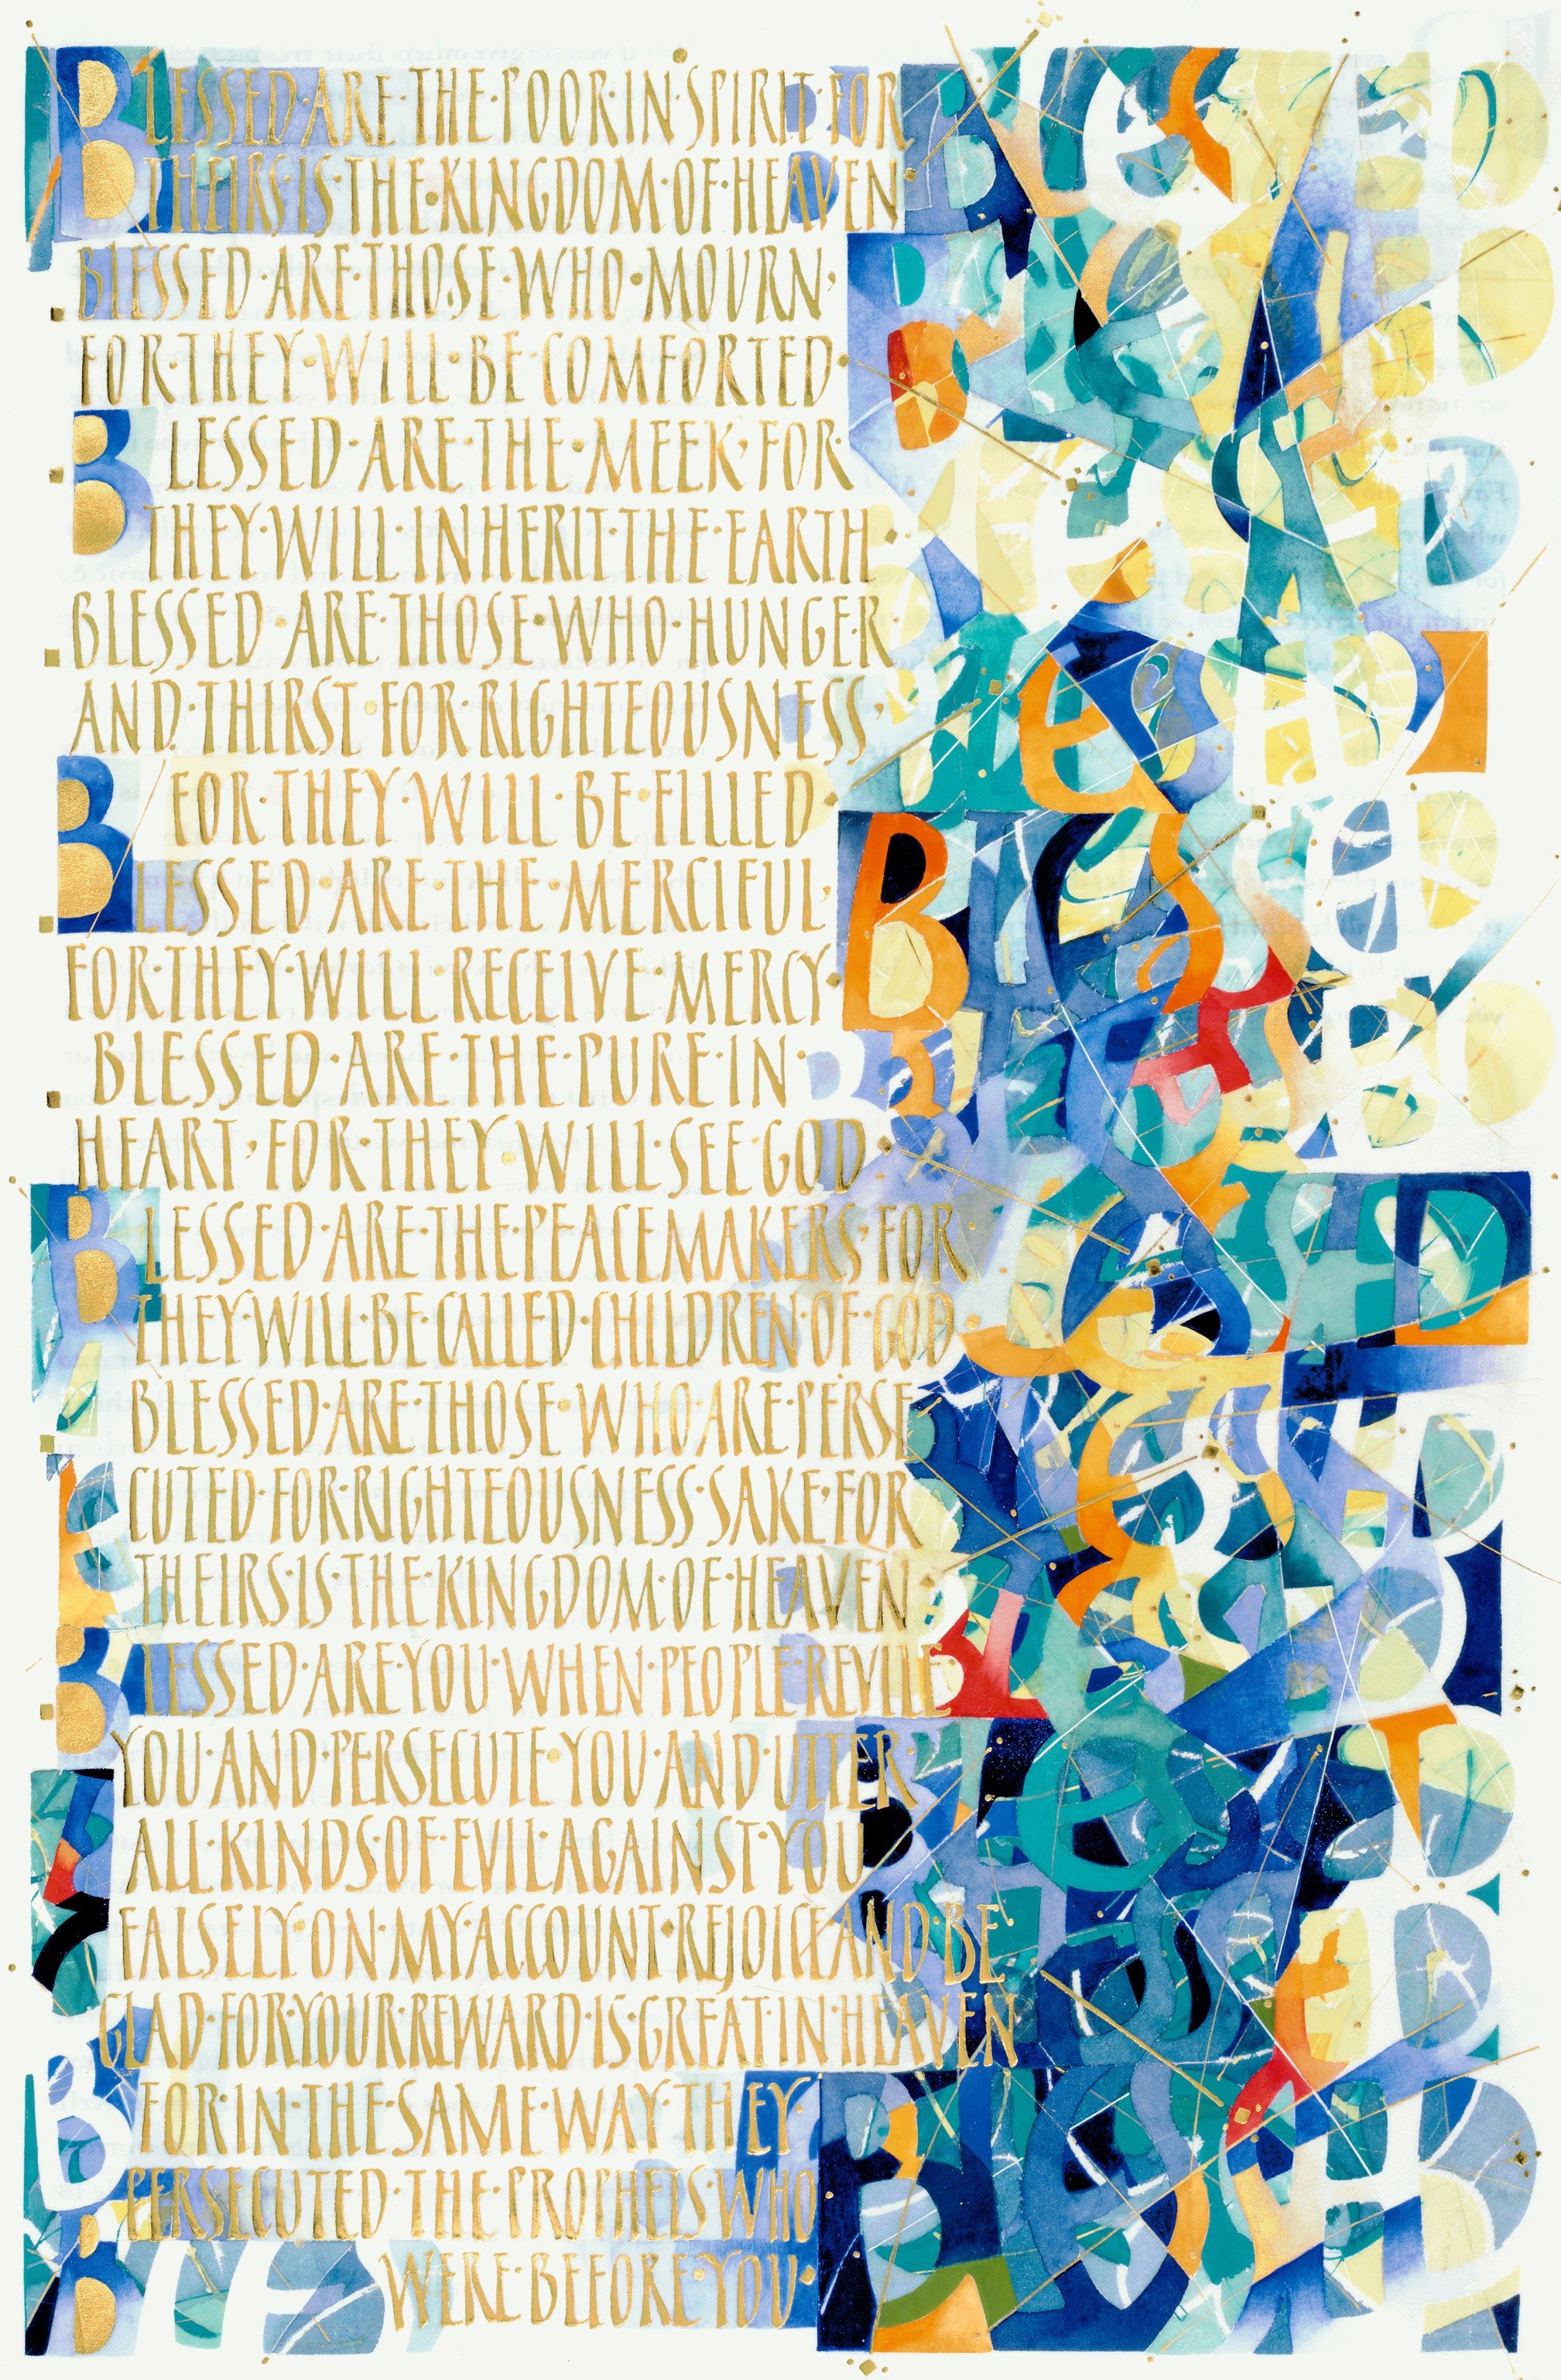 BLESSED·ARE·THE·POOR·IN·SPIRIT·FOR
THEIRS·IS·THE·KINGDOM·OF·HEAVEN
BLESSED·ARE·THOSE·WHO·MOURN·
FOR·THEY·WILL·BE·COMFORTED·
BLESSED·ARE·THE·MEEK, FOR·
THEY·WILL·INHERIT·THE·EARTH·
BLESSED·ARE·THOSE·WHO·HUNGER
AND·THIRST·FOR·RIGHTEOUSNESS,
FOR·THEY·WILL·BE·FILLED·
BLESSED·ARE·THE·MERCIFUL,
FOR·THEY·WILL·RECEIVE·MERCY·
BLESSED·ARE·THE·PURE·IN·
HEART, FOR·THEY·WILL·SEE·GOD·
BLESSED·ARE·THE·PEACEMAKERS·FOR
THEY·WILL·BE·CALLED·CHILDREN·OF·GOD
BLESSED·ARE·THOSE·WHO·ARE·PERSE
CUTED·FOR·RIGHTEOUSNESS·SAKE, FOR
THEIRS·IS·THE·KINGDOM·OF·HEAVEN·
BLESSED·ARE·YOU·WHEN·PEOPLE·REVILE
YOU·AND·PERSECUTE·YOU·AND·UTTER·
ALL·KINDS·OF·EVIL·AGAINST·YOU
FALSELY·ON·MY·ACCOUNT·REJOICE·AND·BE
GLAD·FOR·YOUR·REWARD·IS·GREAT·IN·HEAVEN
FOR·IN·THE·SAME·WAY·THEY·
PERSECUTED·THE·PROPHETS·WHO
WERE·BEFORE·YOU·
BLESSED
BLESSED
BLESSED
BLESSED
BLESSED